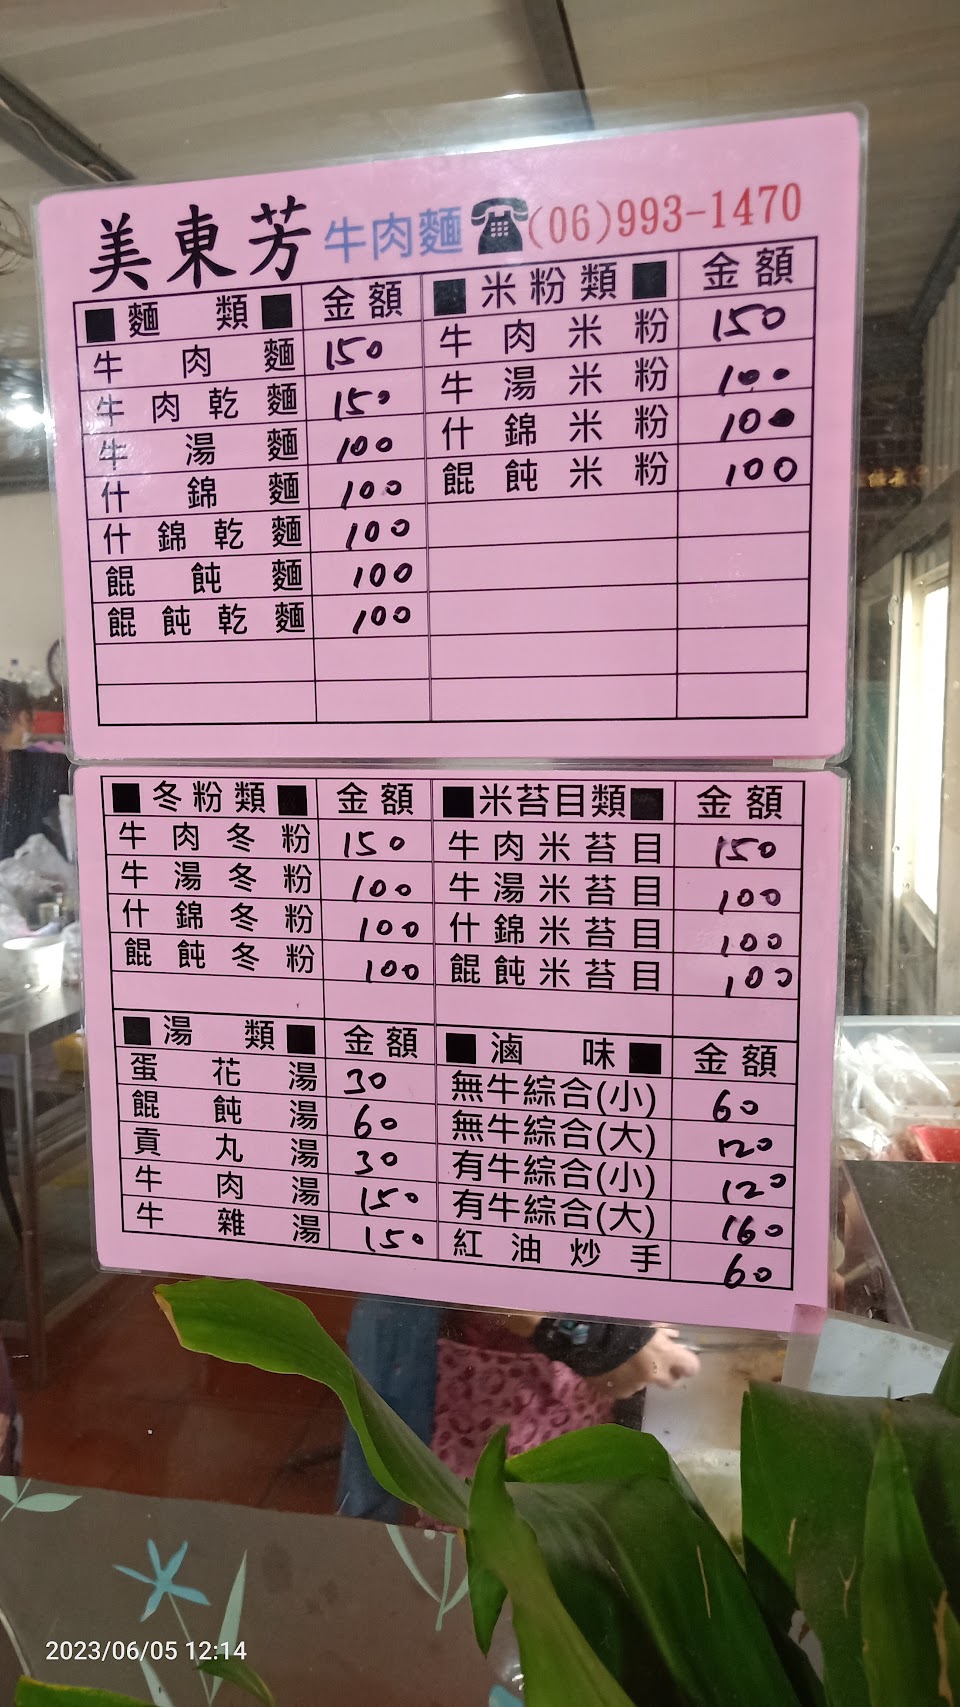 美東芳 牛肉麵 ☎(06)993-1470
■麵類■ 金額 ■米粉類■ 金額
牛肉麵 150 牛肉米粉 150
牛肉乾麵 150 牛湯米粉 100
牛湯麵 100 什錦米粉 100
什錦麵 100 餛飩米粉 100
什錦乾麵 100
餛飩麵 100
餛飩乾麵 100
■冬粉類■ 金額 ■米苔目類■ 金額
牛肉冬粉 150 牛肉米苔目 150
牛湯冬粉 100 牛湯米苔目 100
什錦冬粉 100 什錦米苔目 100
餛飩冬粉 100 餛飩米苔目 100
■湯類■ 金額 ■滷味■ 金額
蛋花湯 30 無牛綜合(小) 60
餛飩湯 60 無牛綜合(大) 120
貢丸湯 30 有牛綜合(小) 120
牛肉湯 150 有牛綜合(大) 160
牛雜湯 150 紅油炒手 60
2023/06/05 12:14